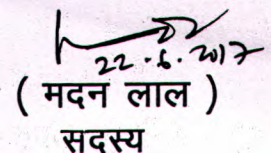 22.6.2017
( मदन लाल )
सदस्य